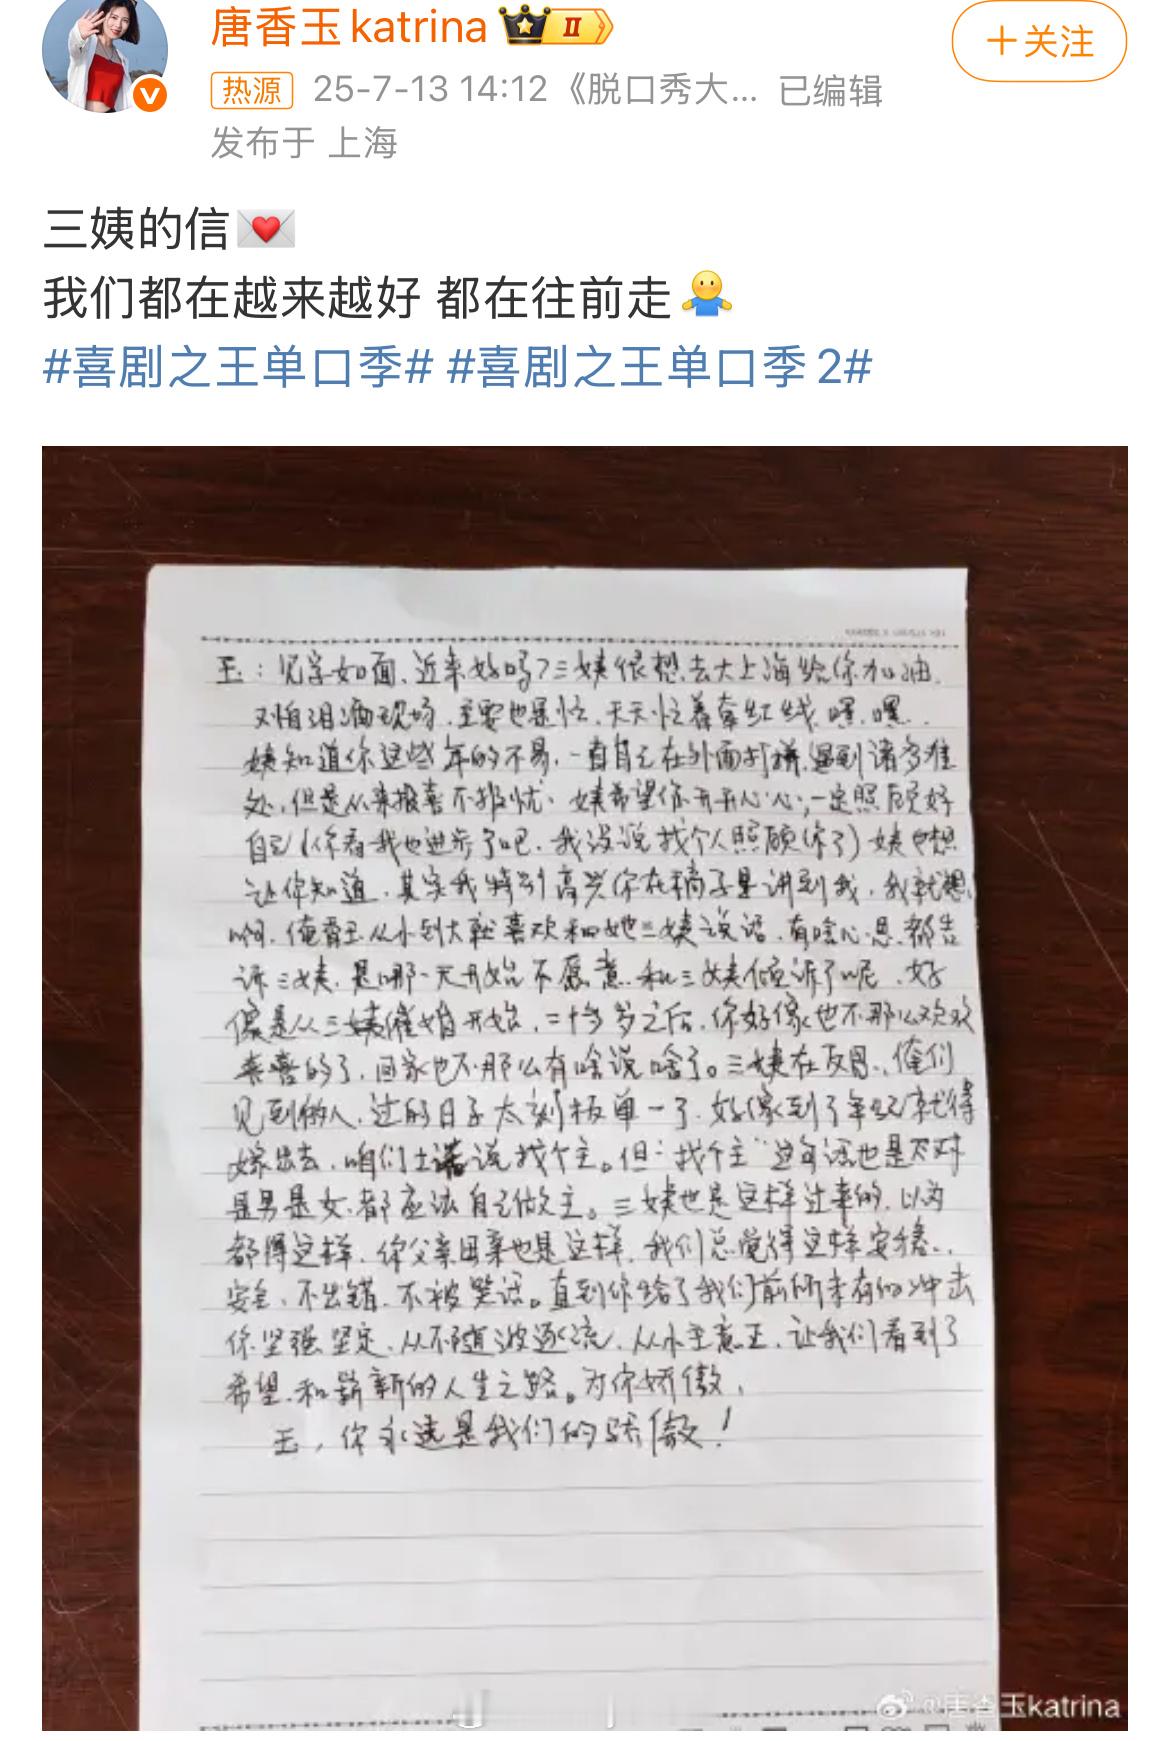 唐香玉katrina
II
+关注
热源 25-7-13 14:12 《脱口秀大... 已编辑
发布于 上海
三姨的信
我们都在越来越好 都在往前走
#喜剧之王单口季# #喜剧之王单口季2#
玉：见字如面、近来好吗？三姨很想去大上海给你加油、
又怕泪洒现场，主要也是忙，天天忙着牵红线，嘿，嘿..
姨知道你这些年的不易，一直自己在外面打拼，遇到诸多难
处，但是从来报喜不报忧、姨希望你开开心心，一定照顾好
自己（你看我也进步了吧，我没说找个人照顾你了）姨也想
让你知道，其实我特别高兴你在稿子里讲到我，我就想
啊，俺香玉从小到大就喜欢和她三姨说话，有啥心思都告
诉三姨，是哪一天开始不愿意和三姨倾诉了呢，好
像是从三姨催婚开始，二十多岁之后，你好像也不那么欢欢
喜喜的了，回家也不那么有啥说啥了。三姨在反思，俺们
见到的人，过的日子太刻板单一了，好像到了年纪就得
嫁出去，咱们土话说找个主。但“找个主”这句话也是不对
是男是女，都应该自己做主。三姨也是这样过来的，以为
都得这样，你父亲母亲也是这样，我们总觉得这样安稳、
安全、不出错，不被笑话。直到你给了我们前所未有的冲击
你坚强坚定、从不随波逐流，从小主意正，让我们看到了
希望，和崭新的人生之路。为你骄傲，
玉，你永远是我们的骄傲！
@唐香玉katrina